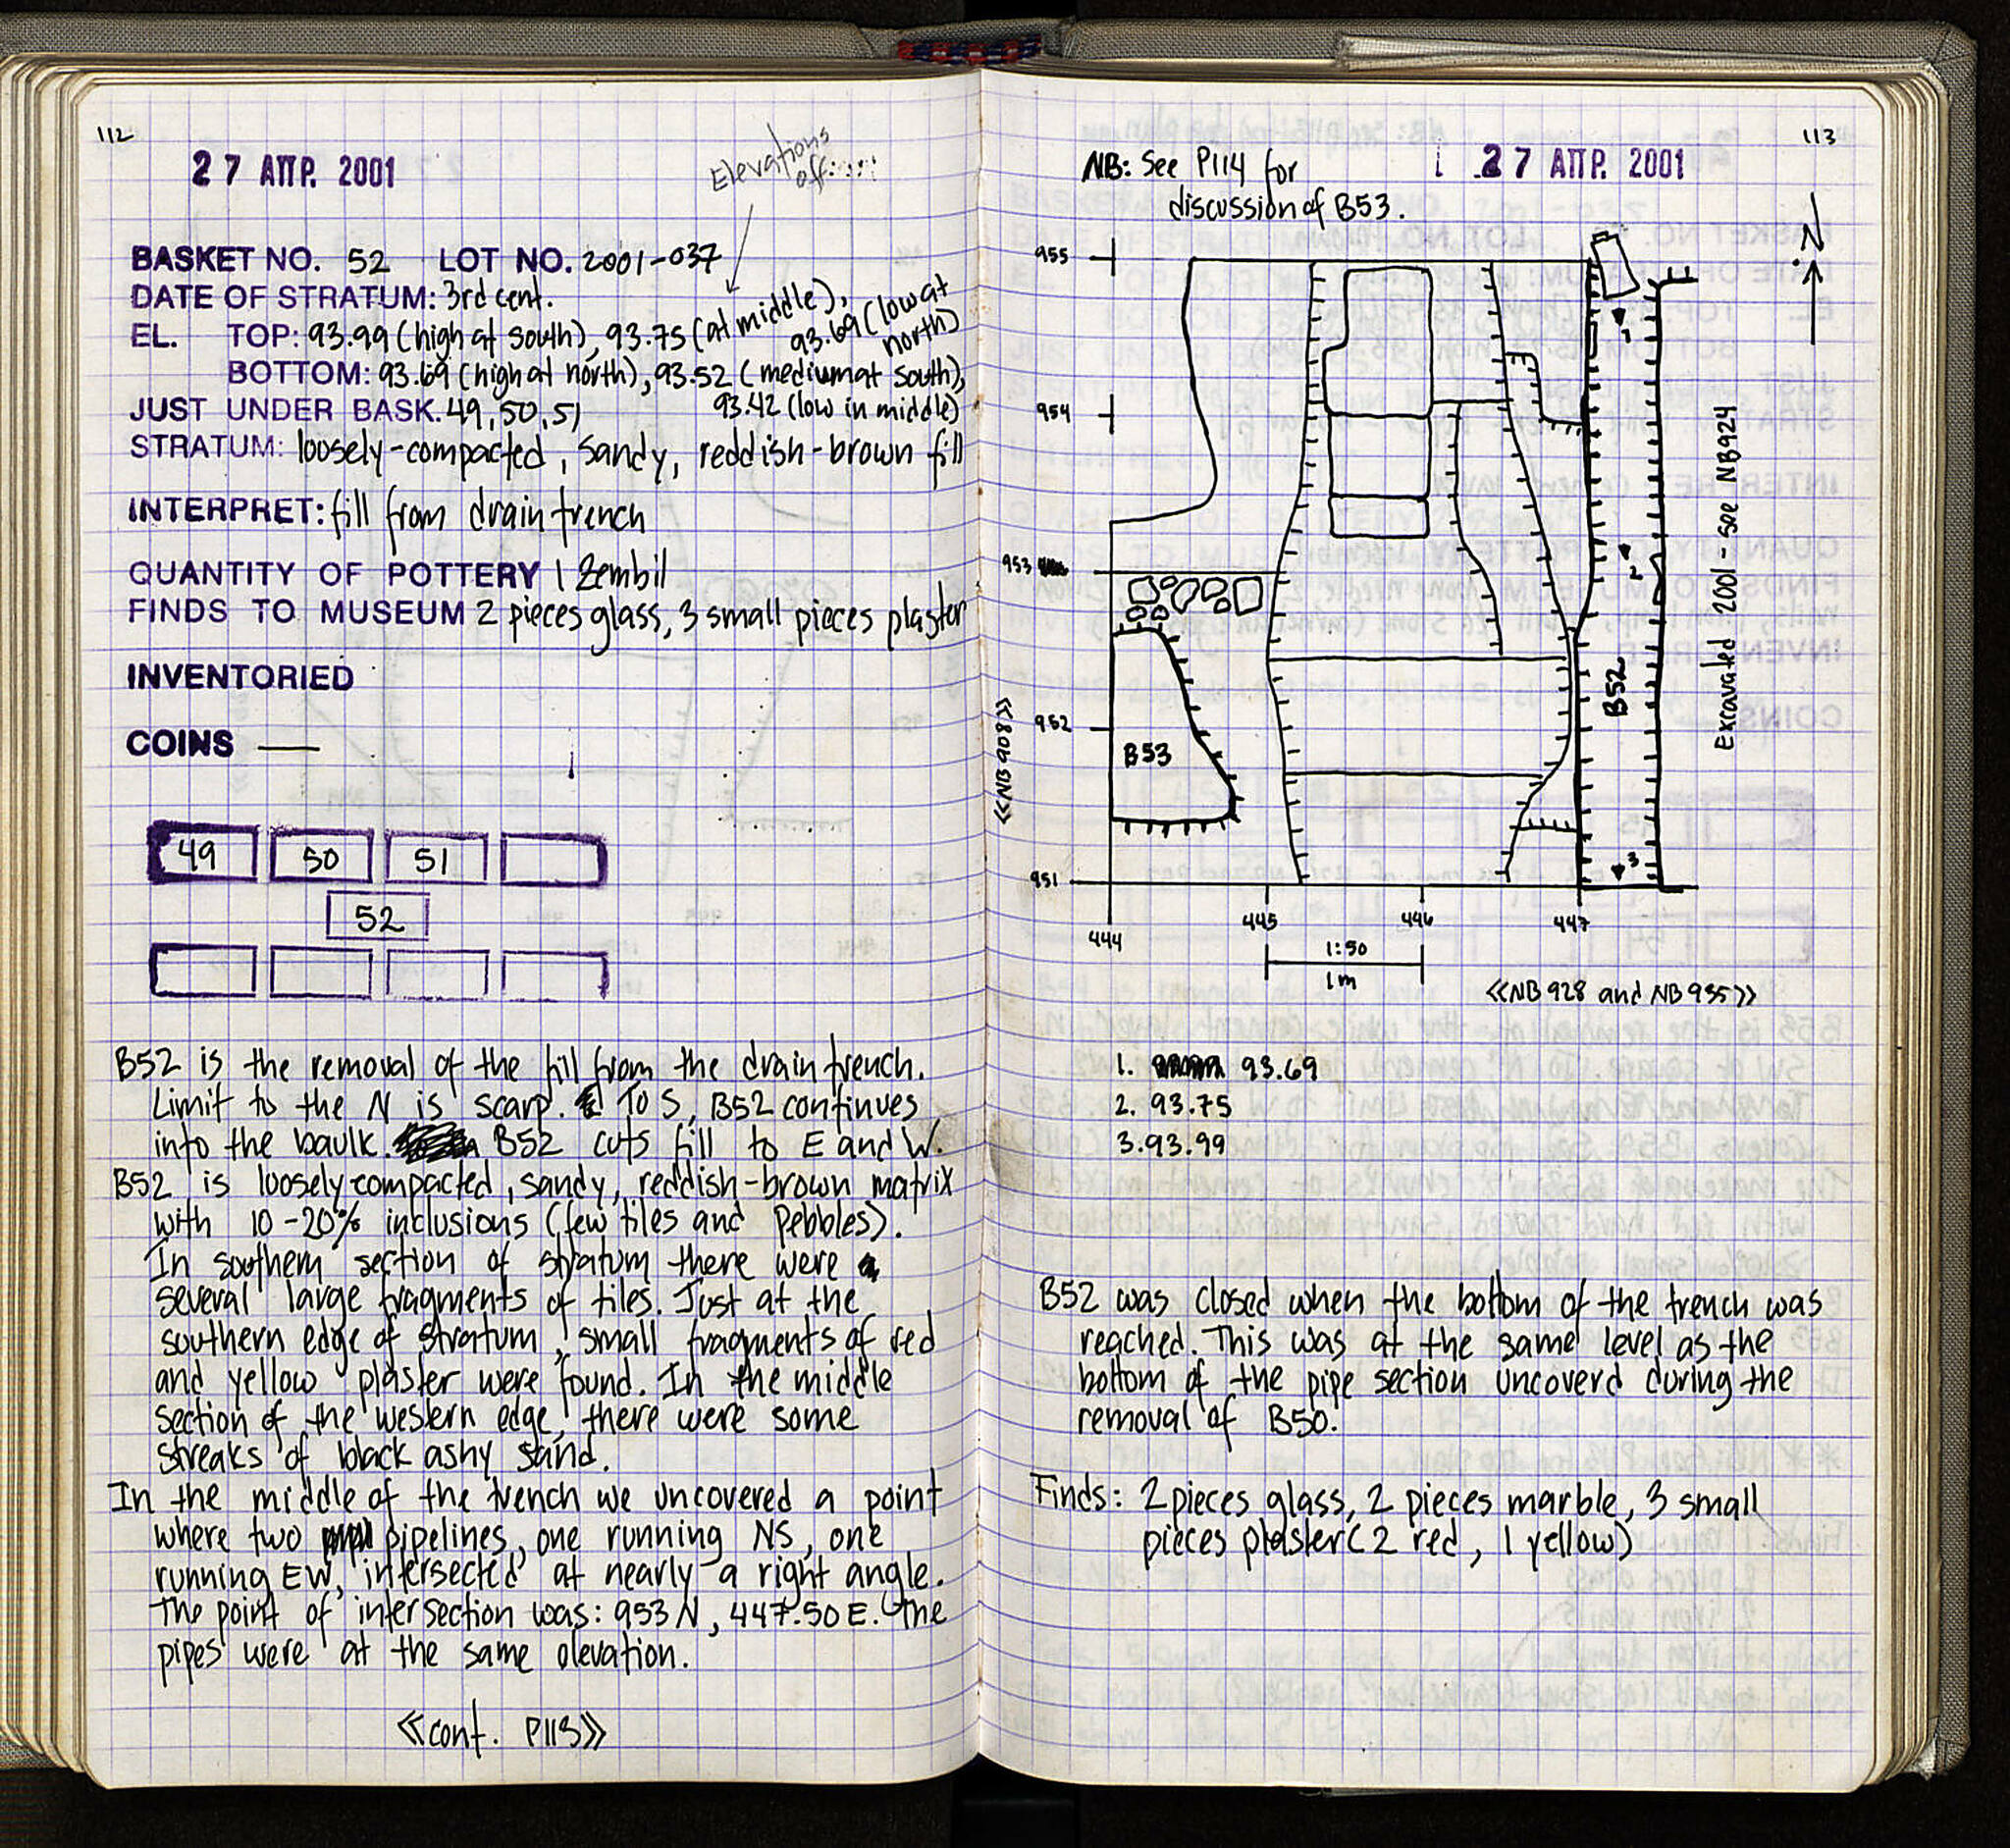 112
27 ΑΠΡ. 2001
Elevations
off.....
BASKET NO. 52 LOT NO. 2001-037
DATE OF STRATUM: 3rd cent.
EL. TOP: 93.99 (high at south), 93.75 (at middle),
93.69 (low at
north)
BOTTOM: 93.69 (high at north), 93.52 (medium at south),
JUST UNDER BASK. 49, 50, 51 93.42 (low in middle)
STRATUM: loosely-compacted, sandy, reddish-brown fill
INTERPRET: fill from drain trench
QUANTITY OF POTTERY 1 Zembil
FINDS TO MUSEUM 2 pieces glass, 3 small pieces plaster
INVENTORIED
COINS —
49 50 51
52
B52 is the removal of the fill from the drain trench.
Limit to the N is scarp. To S, B52 continues
into the baulk. B52 cuts fill to E and W.
B52 is loosely-compacted, sandy, reddish-brown matrix
with 10-20% inclusions (few tiles and pebbles).
In southern section of stratum there were
several large fragments of tiles. Just at the
southern edge of stratum, small fragments of red
and yellow plaster were found. In the middle
section of the western edge, there were some
streaks of black ashy sand.
In the middle of the trench we uncovered a point
where two pipelines, one running NS, one
running EW, intersected at nearly a right angle.
The point of intersection was: 953 N, 447.50 E. The
pipes were at the same elevation.
<<cont. P113>>
113
NB: See P114 for
discussion of B53.
27 ΑΠΡ. 2001
N
955
954
953
952
951
<<NB 908>>
B53
B52
1
2
3
Excavated 2001 - see NB924
444
445
446
447
1:50
1m
<<NB 928 and NB 935>>
1. 93.69
2. 93.75
3. 93.99
B52 was closed when the bottom of the trench was
reached. This was at the same level as the
bottom of the pipe section uncoverd during the
removal of B50.
Finds: 2 pieces glass, 2 pieces marble, 3 small
pieces plaster (2 red, 1 yellow)